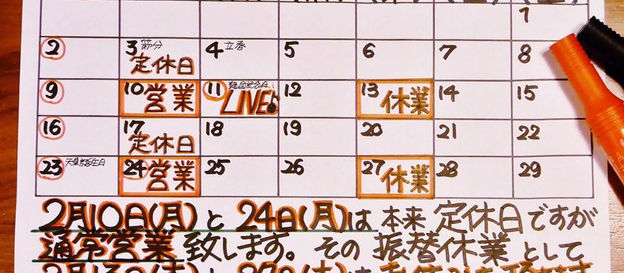 1
2 3 節分 4 立春 5 6 7 8
定休日
9 10 営業 11 建国記念日 12 13 休業 14 15
LIVE♪
16 17 18 19 20 21 22
定休日
23 天皇誕生日 24 営業 25 26 27 休業 28 29
2月10日(月)と24日(月)は本来定休日ですが
通常営業致します。その振替休業として